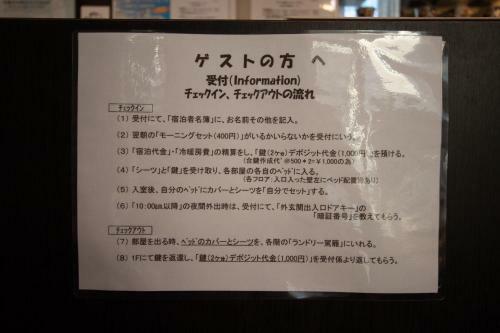 ゲストの方 へ
受付(Information)
チェックイン、チェックアウトの流れ
チェックイン
(1) 受付にて、「宿泊者名簿」に、お名前その他を記入。
(2) 翌朝の「モーニングセット(400円)」がいるかいらないかを受付にいう。
(3) 「宿泊代金」・「冷暖房費」の精算をし、「鍵(2ケ分)デポジット代金(1,000円)」を預ける。
(合鍵作成代@500*2=¥1,000の為)
(4) 「シーツ」と「鍵」を受け取り、各部屋の各自のベッドに入る。
(各フロア:入口入った壁左にベッド配置図あり)
(5) 入室後、自分のベッドにカバーとシーツを「自分でセット」する。
(6) 「10:00pm以降」の夜間外出時は、受付にて、「外玄関出入口ドアキー」の
「暗証番号」を教えてもらう。
チェックアウト
(7) 部屋を出る時、ベッドのカバーとシーツを、各階の「ランドリー篭」にいれる。
(8) 1Fにて鍵を返還し、「鍵(2ケ分)デポジット代金(1,000円)」を受付係より返してもらう。